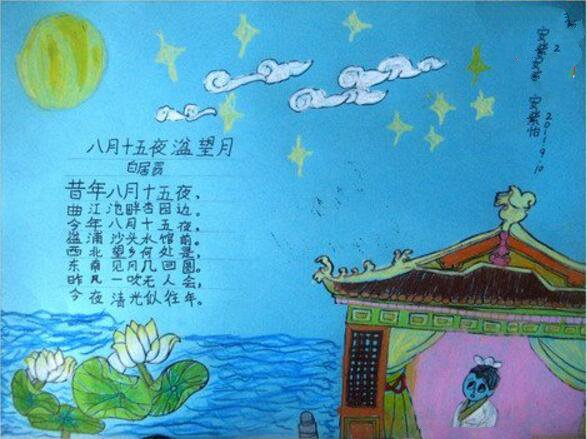 八月十五夜湓望月
白居易
昔年八月十五夜，
曲江池畔杏园边。
今年八月十五夜，
湓浦沙头水馆前。
西北望乡何处是，
东南见月几回圆。
昨风一吹无人会，
今夜清光似往年。
安紫怡
2011.9.10